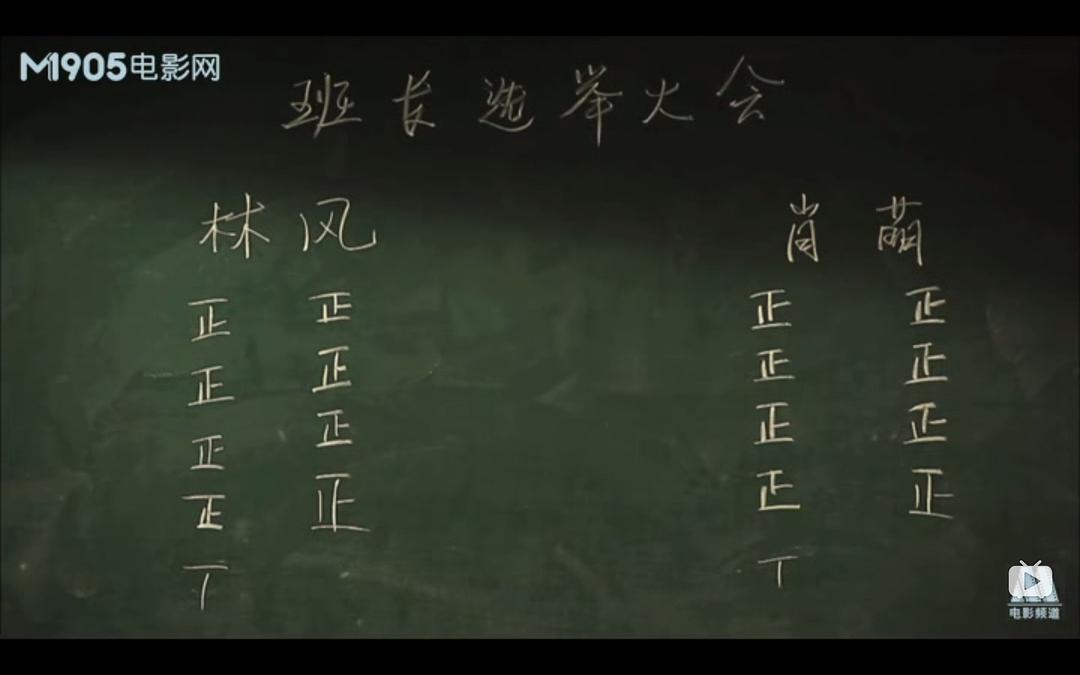 M1905电影网
班长选举火会
林风 肖萌
正 正 正 正
正 正 正 正
正 正 正 正
正 正 正 正
丅 丅
电影频道